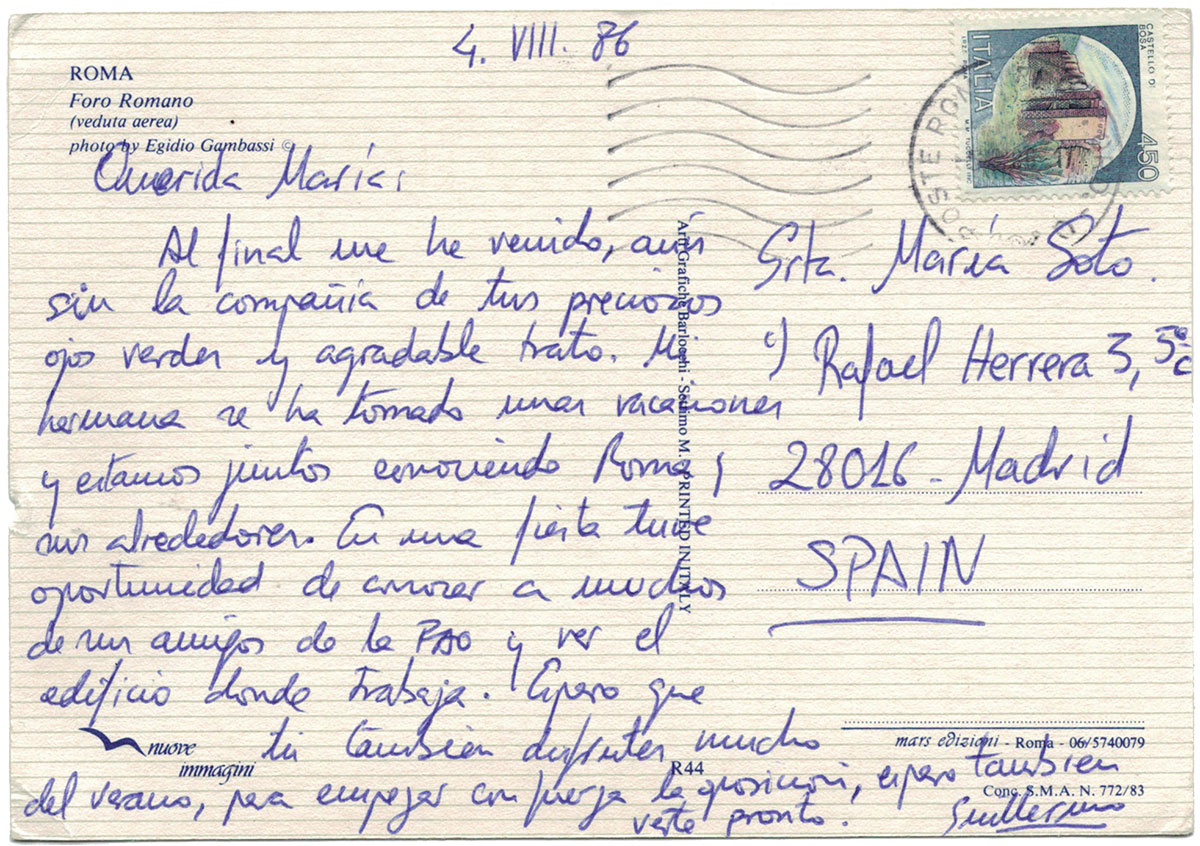 4. VIII. 86
ROMA
Foro Romano
(veduta aerea)
photo by Egidio Gambassi ©
CASTELLO DI BOSA
ITALIA
450
Querida María:
Al final me he venido, aún
sin la compañía de tus preciosos
ojos verdes y agradable trato. Mi
hermana se ha tomado unas vacaciones
y estamos juntos conociendo Roma y
sus alrededores. En una fiesta tuve
oportunidad de conocer a muchos
de sus amigos de la FAO y ver el
edificio donde trabaja. Espero que
tú también disfrutes mucho
del verano, para empezar con fuerza la oposición, espero también
verte pronto.
Guillermo
Arti Grafiche Barlocchi - Settimo M. - PRINTED IN ITALY
Srta. María Soto.
c) Rafael Herrera 3, 5º C
28016 - Madrid
SPAIN
nuove
immagini
R44
mars edizioni - Roma - 06/5740079
Conc. S.M.A. N. 772/83